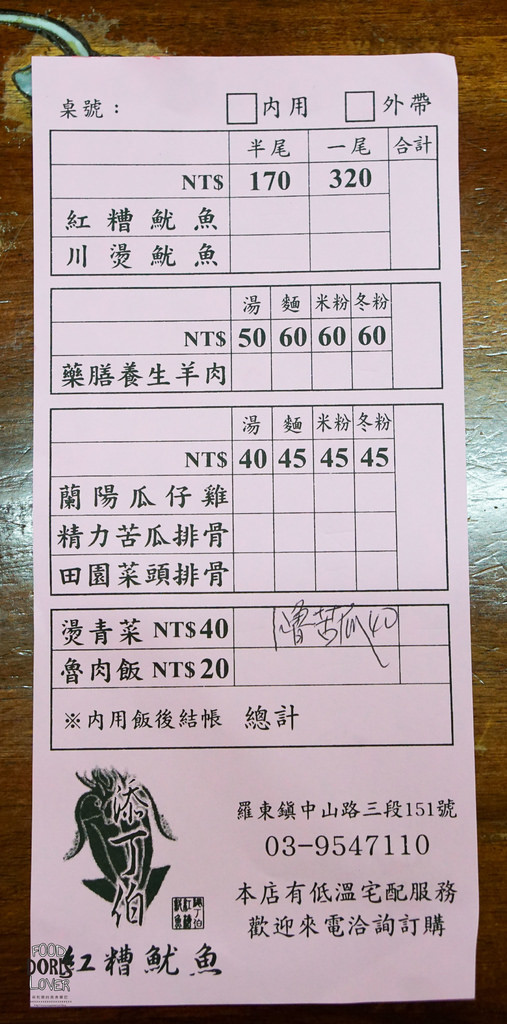 桌號： □內用 □外帶
半尾 一尾 合計
NT$ 170 320
紅糟魷魚
川燙魷魚
湯 麵 米粉 冬粉
NT$ 50 60 60 60
藥膳養生羊肉
湯 麵 米粉 冬粉
NT$ 40 45 45 45
蘭陽瓜仔雞
精力苦瓜排骨
田園菜頭排骨
燙青菜 NT$40 滷苦瓜40
魯肉飯 NT$20
※內用飯後結帳 總計
添丁伯
羅東鎮中山路三段151號
03-9547110
本店有低溫宅配服務
歡迎來電洽詢訂購
紅糟魷魚
FOOD
DORIS
LOVER